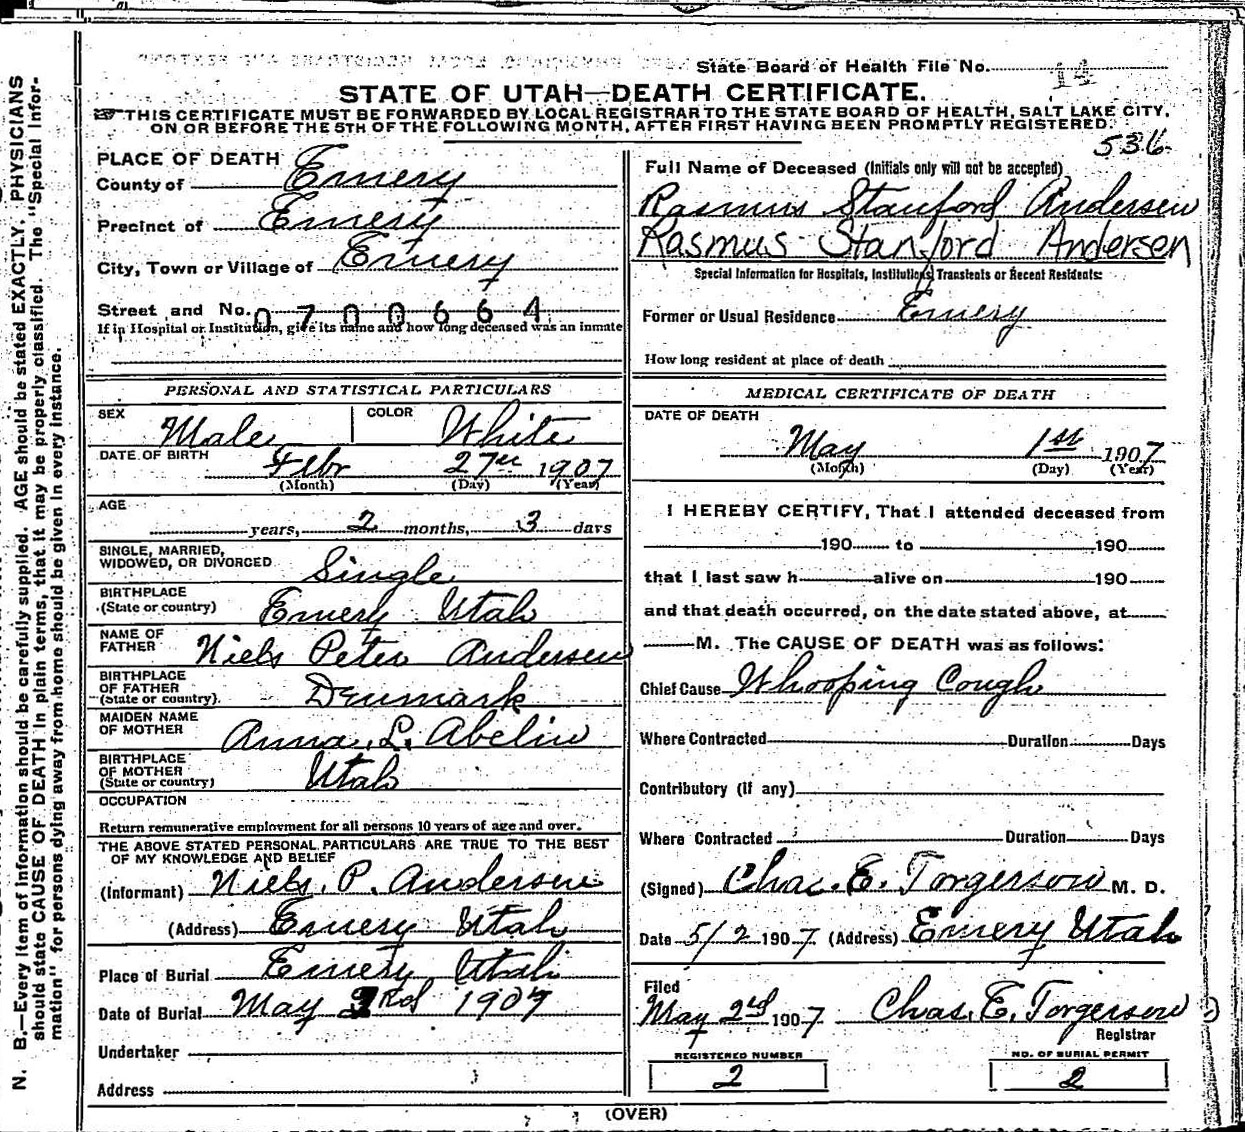 State Board of Health File No. 14
STATE OF UTAH—DEATH CERTIFICATE.
THIS CERTIFICATE MUST BE FORWARDED BY LOCAL REGISTRAR TO THE STATE BOARD OF HEALTH, SALT LAKE CITY,
ON OR BEFORE THE 5TH OF THE FOLLOWING MONTH, AFTER FIRST HAVING BEEN PROMPTLY REGISTERED.
536
N. B.—Every item of information should be carefully supplied. AGE should be stated EXACTLY. PHYSICIANS
should state CAUSE OF DEATH in plain terms, that it may be properly classified. The "Special Infor-
mation" for persons dying away from home should be given in every instance.
PLACE OF DEATH
County of Emery
Precinct of Emery
City, Town or Village of Emery
Street and No. 0700664
If in Hospital or Institution, give its name and how long deceased was an inmate
PERSONAL AND STATISTICAL PARTICULARS
SEX Male COLOR White
DATE OF BIRTH Febr 27th 1907
(Month) (Day) (Year)
AGE
years, 2 months, 3 days
SINGLE, MARRIED,
WIDOWED, OR DIVORCED Single
BIRTHPLACE
(State or country) Emery Utah
NAME OF
FATHER Niels Peter Andersen
BIRTHPLACE
OF FATHER
(State or country) Denmark
MAIDEN NAME
OF MOTHER Anna L. Abelin
BIRTHPLACE
OF MOTHER
(State or country) Utah
OCCUPATION
Return remunerative employment for all persons 10 years of age and over.
THE ABOVE STATED PERSONAL PARTICULARS ARE TRUE TO THE BEST
OF MY KNOWLEDGE AND BELIEF
(Informant) Niels. P. Andersen
(Address) Emery Utah
Place of Burial Emery Utah
Date of Burial May 3rd 1907
Undertaker
Address
Full Name of Deceased (Initials only will not be accepted)
Rasmus Stanford Andersen
Rasmus Stanford Andersen
Special Information for Hospitals, Institutions, Transients or Recent Residents:
Former or Usual Residence Emery
How long resident at place of death
MEDICAL CERTIFICATE OF DEATH
DATE OF DEATH
May 1st 1907
(Month) (Day) (Year)
I HEREBY CERTIFY, That I attended deceased from
190 to 190
that I last saw h alive on 190
and that death occurred, on the date stated above, at
M. The CAUSE OF DEATH was as follows:
Chief Cause Whooping Cough
Where Contracted Duration Days
Contributory (If any)
Where Contracted Duration Days
(Signed) Chas. E. Torgerson M. D.
Date 5/2 1907. (Address) Emery Utah
Filed
May 2nd 1907 Chas. E. Torgerson
Registrar
REGISTERED NUMBER
2
NO. OF BURIAL PERMIT
2
(OVER)